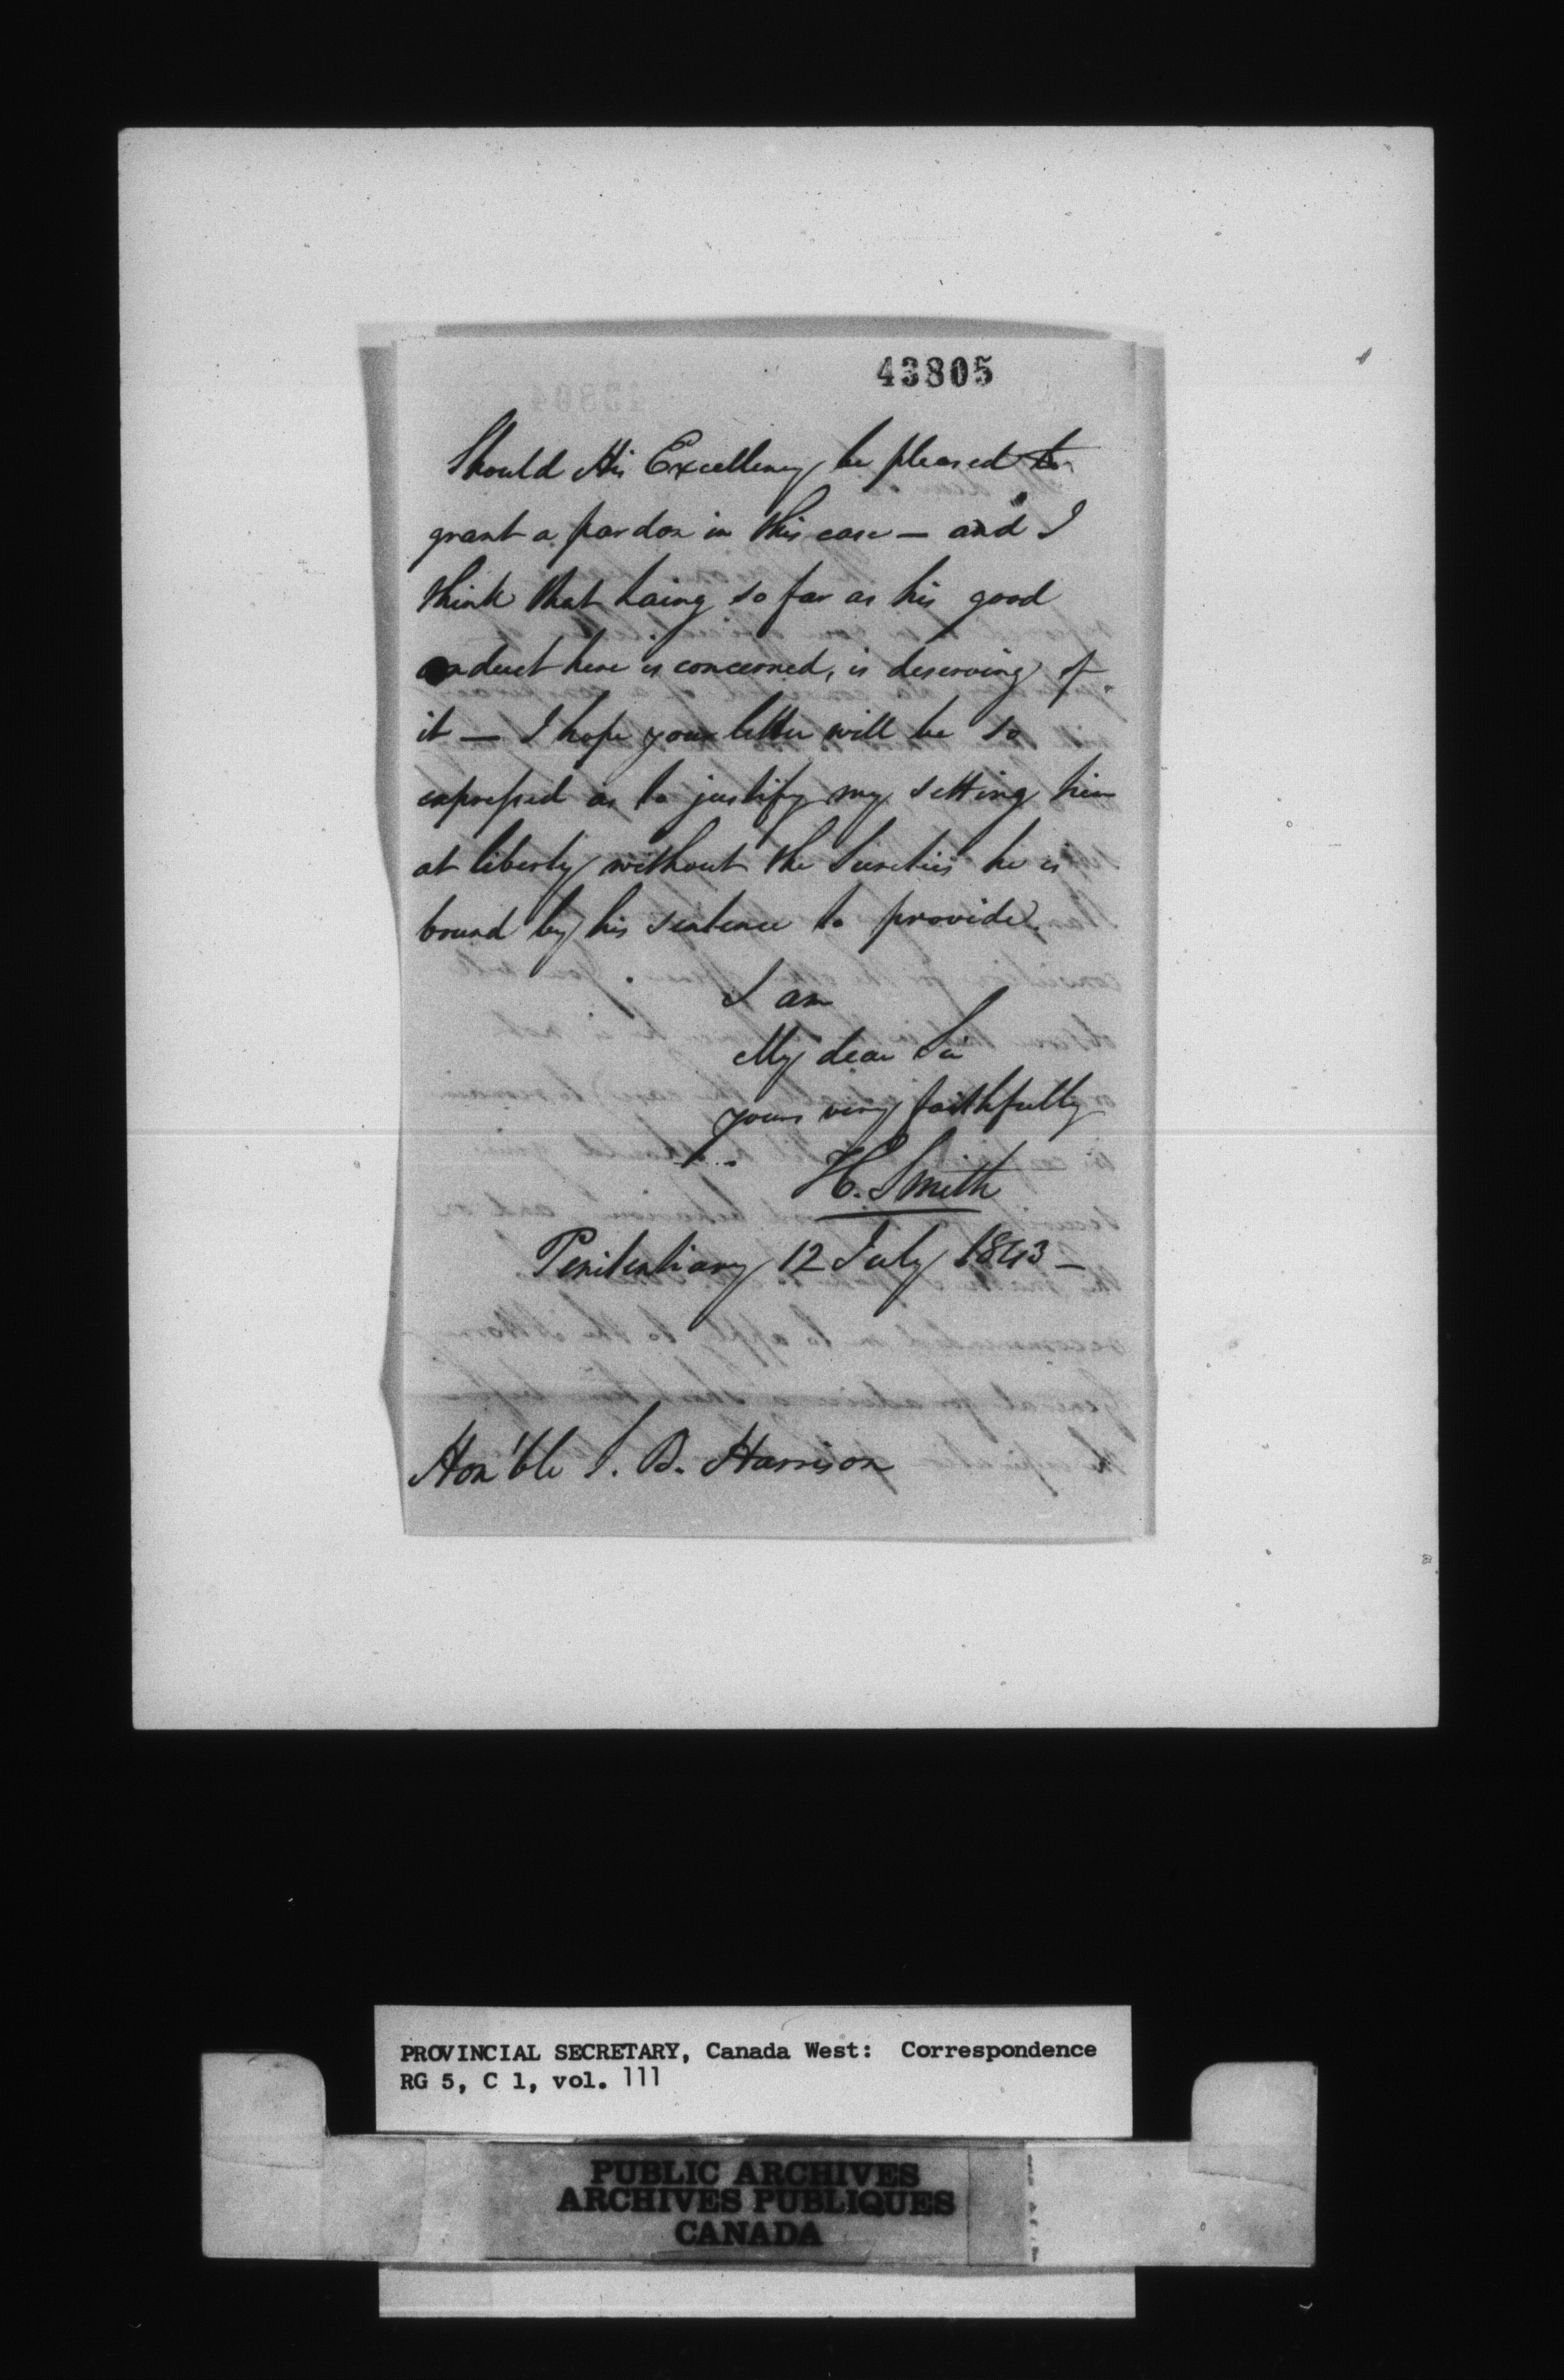 43805
Should His Excellency be pleased to
grant a pardon in this case — and I
think that Laing so far as his good
conduct here is concerned, is deserving of
it — I hope your letter will be so
expressed as to justify my setting him
at liberty without the Sureties he is
bound by his sentence to provide.
I am
My dear Sir
yours very faithfully
H. Smith
Penitentiary 12 July 1843 —
Hon'ble S. B. Harrison
PROVINCIAL SECRETARY, Canada West: Correspondence
RG 5, C 1, vol. 111
PUBLIC ARCHIVES
ARCHIVES PUBLIQUES
CANADA